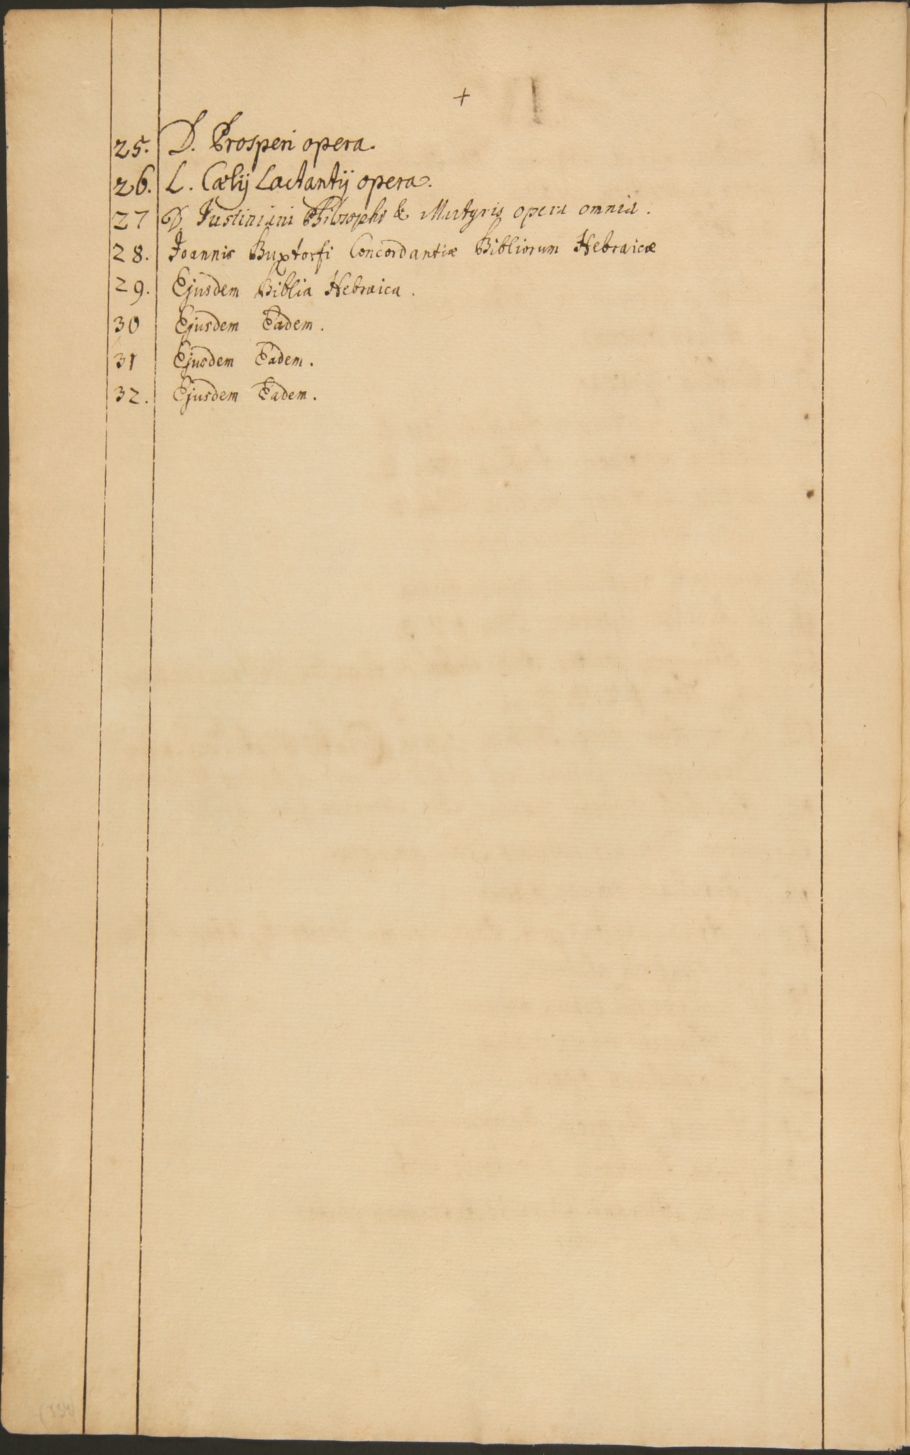 +
25. D. Prosperi opera.
26. L. Cælij Lactantij opera.
27 D. Justiniani Philosophi & Martyris opera omnia.
28. Joannis Buxtorfi Concordantiæ Bibliorum Hebraicæ
29. Ejusdem Biblia Hebraica.
30 Ejusdem Eadem.
31 Ejusdem Eadem.
32. Ejusdem Eadem.